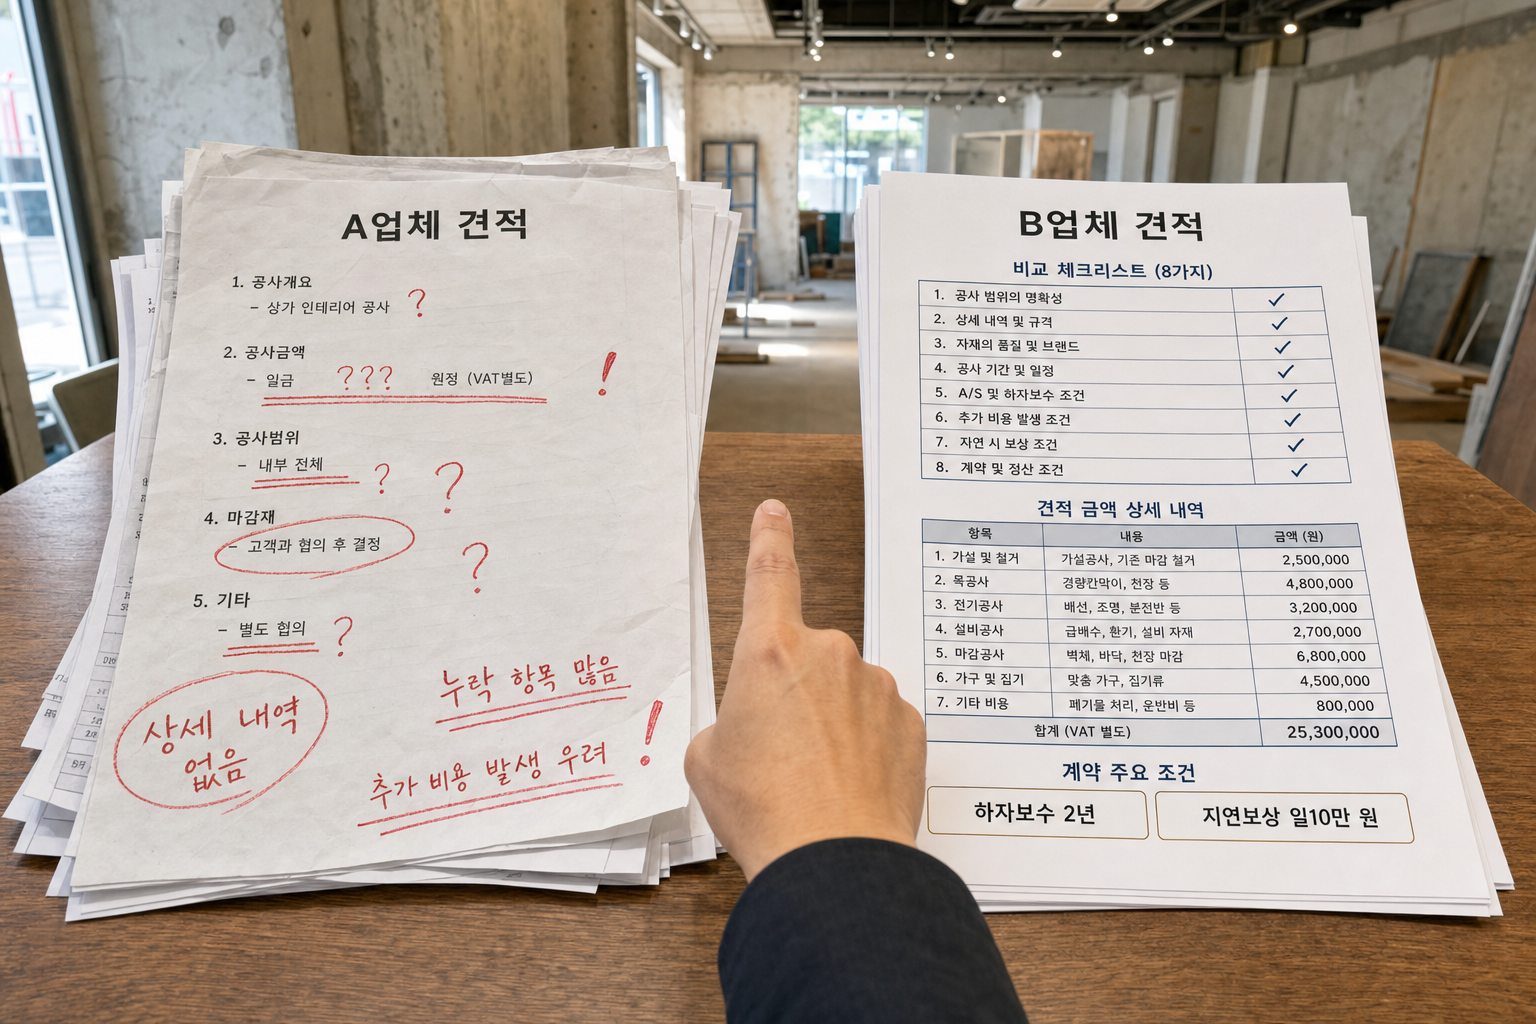 A업체 견적
1. 공사개요
- 상가 인테리어 공사 ?
2. 공사금액
- 일금 ??? 원정 (VAT별도) !
3. 공사범위
- 내부 전체 ? ?
4. 마감재
- 고객과 협의 후 결정 ?
5. 기타
- 별도 협의 ?
상세 내역
없음
누락 항목 많음
추가 비용 발생 우려 !
B업체 견적
비교 체크리스트 (8가지)
1. 공사 범위의 명확성 ✓
2. 상세 내역 및 규격 ✓
3. 자재의 품질 및 브랜드 ✓
4. 공사 기간 및 일정 ✓
5. A/S 및 하자보수 조건 ✓
6. 추가 비용 발생 조건 ✓
7. 자연 시 보상 조건 ✓
8. 계약 및 정산 조건 ✓
견적 금액 상세 내역
항목 내용 금액 (원)
1. 가설 및 철거 가설공사, 기존 마감 철거 2,500,000
2. 목공사 경량칸막이, 천장 등 4,800,000
3. 전기공사 배선, 조명, 분전반 등 3,200,000
4. 설비공사 급배수, 환기, 설비 자재 2,700,000
5. 마감공사 벽체, 바닥, 천장 마감 6,800,000
6. 가구 및 집기 맞춤 가구, 집기류 4,500,000
7. 기타 비용 폐기물 처리, 운반비 등 800,000
합계 (VAT 별도) 25,300,000
계약 주요 조건
하자보수 2년
지연보상 일10만 원